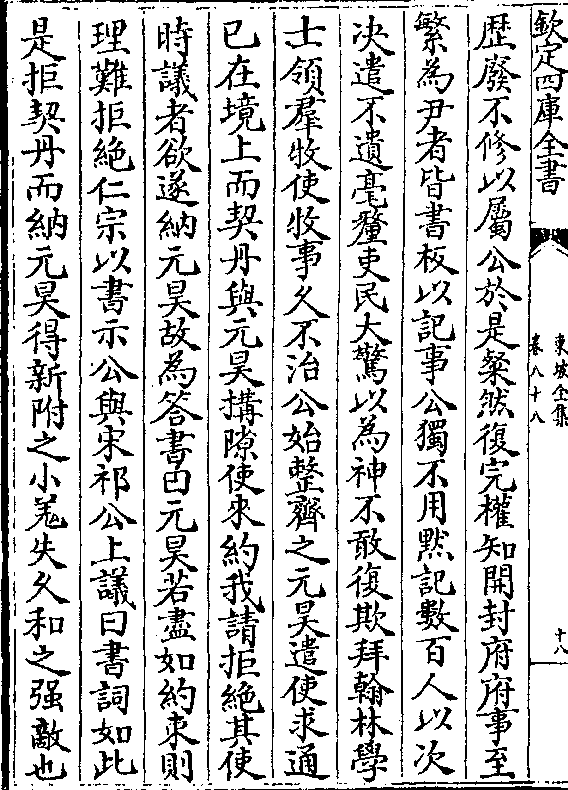 欽定四庫全書
東坡全集
卷八十八
十八
歴廢不修以屬公於是粲然復完權知開封府府事至
繁為尹者皆書板以記事公獨不用黙記數百人以次
决遣不遺毫釐吏民大驚以為神不敢復欺拜翰林學
士領羣牧使牧事乆不治公始整齊之元昊遣使求通
已在境上而契丹與元昊搆隙使來約我請拒絶其使
時議者欲遂納元昊故為答書曰元昊若盡如約束則
理難拒絶仁宗以書示公與宋祁公上議曰書詞如此
是拒契丹而納元昊得新附之小羌失乆和之强敵也